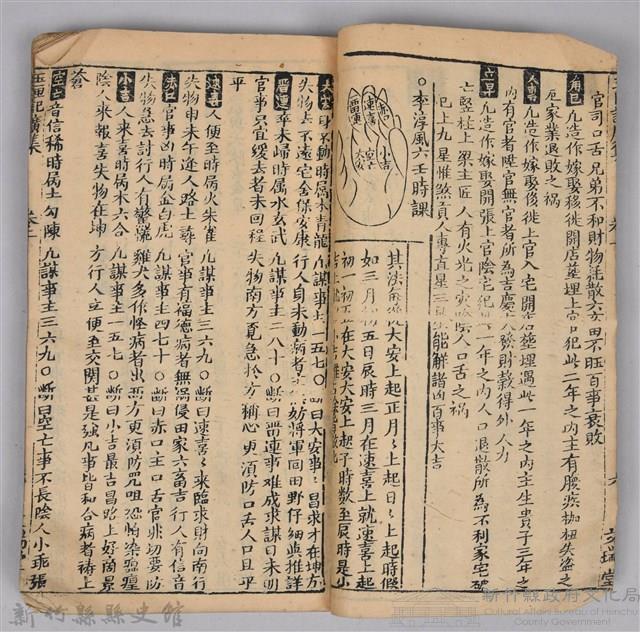 官司口舌兄弟不和財物耗散六畜田不旺百事衰敗
角巳
凡造作嫁娶移徙開店塟埋上官犯此二年之內主有
厄家業退敗之禍
人專
凡造作嫁娶修徙上官入宅開店塟埋遇此一年之內主生貴子三年之
內有官者陞官無官者所為吉慶大發財穀得外人力
立早
凡造作嫁娶開張上官陰宅犯此一年之內人口退散所為不利家宅破
亡豎柱上梁主匠人有火光之災陰人口舌之禍
巳上九星惟煞貢人專直星三星能解諸凶百事大吉
○李淳風六壬時課
留連
速喜
赤口
小吉
空亡
大安
其法俱從大安上起正月月上起日日上起時假
如三月初五日辰時三月在速喜上就速喜上起
初一初五在大安大安上起子時數至辰時是小
大安
身不動時屬木青龍凡謀事主一五七○斷曰大安事事昌求才在坤方
失物去不遠宅舍保安康行人身未動病者主無妨將軍回田野仔細與推詳
留連
卒未歸時屬水玄武凡謀事主二八十○斷曰留連事難成求謀日未明
官事只宜緩去者未回程失物南方覓急於方稱心更須防口舌人口且平
平
速喜
人便至時屬火朱雀凡謀事主三六九○斷曰速喜喜來臨求財向南行
失物申未午逢人路上尋官事有福德病者無禍侵田家六畜吉行人有信音
赤口
官事凶時屬金白虎凡謀事主四七十○斷曰赤口主口舌官非切要防
失物急去討行人有驚慌雞犬多作怪病者出西方更須防咒咀恐怕染瘟瘟
小吉
人來喜時屬木六合凡謀事主一五七○斷曰小吉最吉昌路上好商量
陰人來報喜失物在坤方行人立便至交関甚是強凡事皆日和合病者禱上
蒼
空亡
音信稀時屬土勾陳凡謀事主三六九○斷曰空亡事不長陰人小乖張
玉匣記廣集
卷一
新竹縣縣史館
新竹縣政府文化局
Cultural Affairs Bureau of Hsinchu
County Government